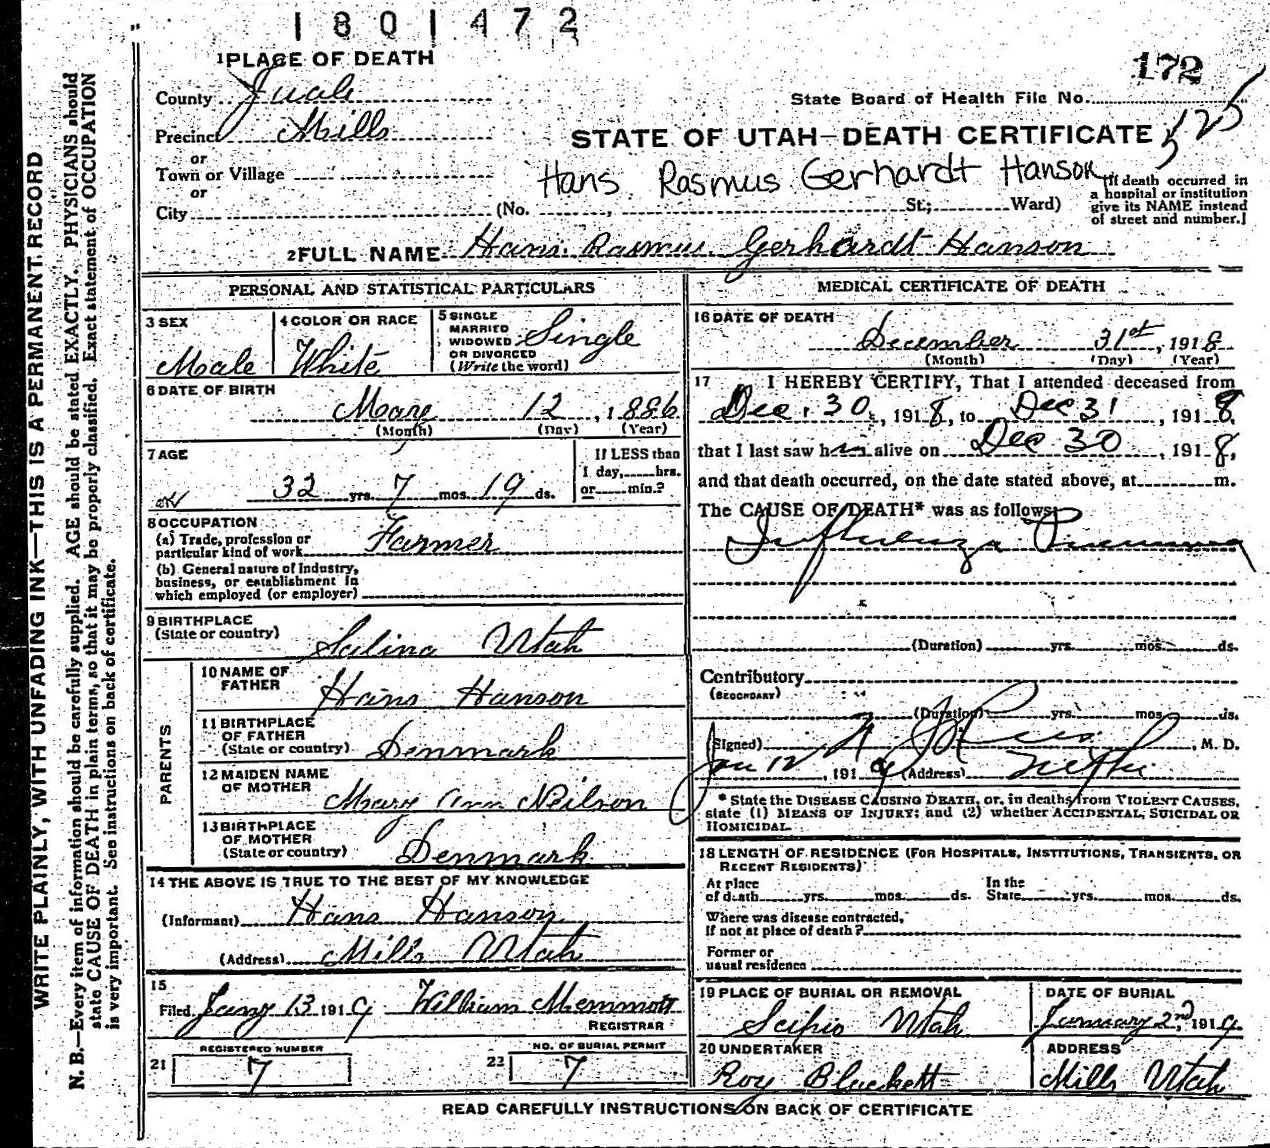 1801472
172
1 PLACE OF DEATH
County Juab
State Board of Health File No.
Precinct Mills
STATE OF UTAH—DEATH CERTIFICATE
525
or
Town or Village
Hans Rasmus Gerhardt Hanson
or
City (No. , St; Ward)
[If death occurred in
a hospital or institution
give its NAME instead
of street and number.]
2 FULL NAME Hans Rasmus Gerhardt Hanson
PERSONAL AND STATISTICAL PARTICULARS
3 SEX
Male
4 COLOR OR RACE
White
5 SINGLE
MARRIED
WIDOWED
OR DIVORCED
(Write the word)
Single
6 DATE OF BIRTH
May 12, 1886
(Month) (Day) (Year)
7 AGE
32 yrs. 7 mos. 19 ds.
If LESS than
1 day, hrs.
or min.?
8 OCCUPATION
(a) Trade, profession or
particular kind of work Farmer
(b) General nature of Industry,
business, or establishment in
which employed (or employer)
9 BIRTHPLACE
(State or country) Salina Utah
PARENTS
10 NAME OF
FATHER Hans Hanson
11 BIRTHPLACE
OF FATHER
(State or country) Denmark
12 MAIDEN NAME
OF MOTHER Mary Ann Neilson
13 BIRTHPLACE
OF MOTHER
(State or country) Denmark
14 THE ABOVE IS TRUE TO THE BEST OF MY KNOWLEDGE
(Informant) Hans Hanson
(Address) Mills Utah
15
Filed Jany 13 1919 William Memmott
REGISTRAR
REGISTERED NUMBER
21 7
NO. OF BURIAL PERMIT
22 7
MEDICAL CERTIFICATE OF DEATH
16 DATE OF DEATH
December 31st, 1918
(Month) (Day) (Year)
17 I HEREBY CERTIFY, That I attended deceased from
Dec. 30, 1918, to Dec 31, 1918
that I last saw him alive on Dec 30, 1918,
and that death occurred, on the date stated above, at m.
The CAUSE OF DEATH* was as follows:
Influenza Pneumonia
(Duration) yrs. mos. ds.
Contributory
(SECONDARY)
(Duration) yrs. mos. ds.
(Signed) , M. D.
Jan 12, 1919 (Address) Nephi
* State the DISEASE CAUSING DEATH, or, in deaths from VIOLENT CAUSES,
state (1) MEANS OF INJURY; and (2) whether ACCIDENTAL, SUICIDAL OR
HOMICIDAL
18 LENGTH OF RESIDENCE (FOR HOSPITALS, INSTITUTIONS, TRANSIENTS, OR
RECENT RESIDENTS)
At place
of death yrs. mos. ds.
In the
State yrs. mos. ds.
Where was disease contracted,
If not at place of death?
Former or
usual residence
19 PLACE OF BURIAL OR REMOVAL
Scipio Utah
DATE OF BURIAL
January 2nd, 1919
20 UNDERTAKER
Roy Blackett
ADDRESS
Mills Utah
READ CAREFULLY INSTRUCTIONS ON BACK OF CERTIFICATE
WRITE PLAINLY, WITH UNFADING INK—THIS IS A PERMANENT RECORD
N. B.—Every item of information should be carefully supplied. AGE should be stated EXACTLY. PHYSICIANS should
state CAUSE OF DEATH in plain terms, so that it may be properly classified. Exact statement of OCCUPATION
is very important. See instructions on back of certificate.